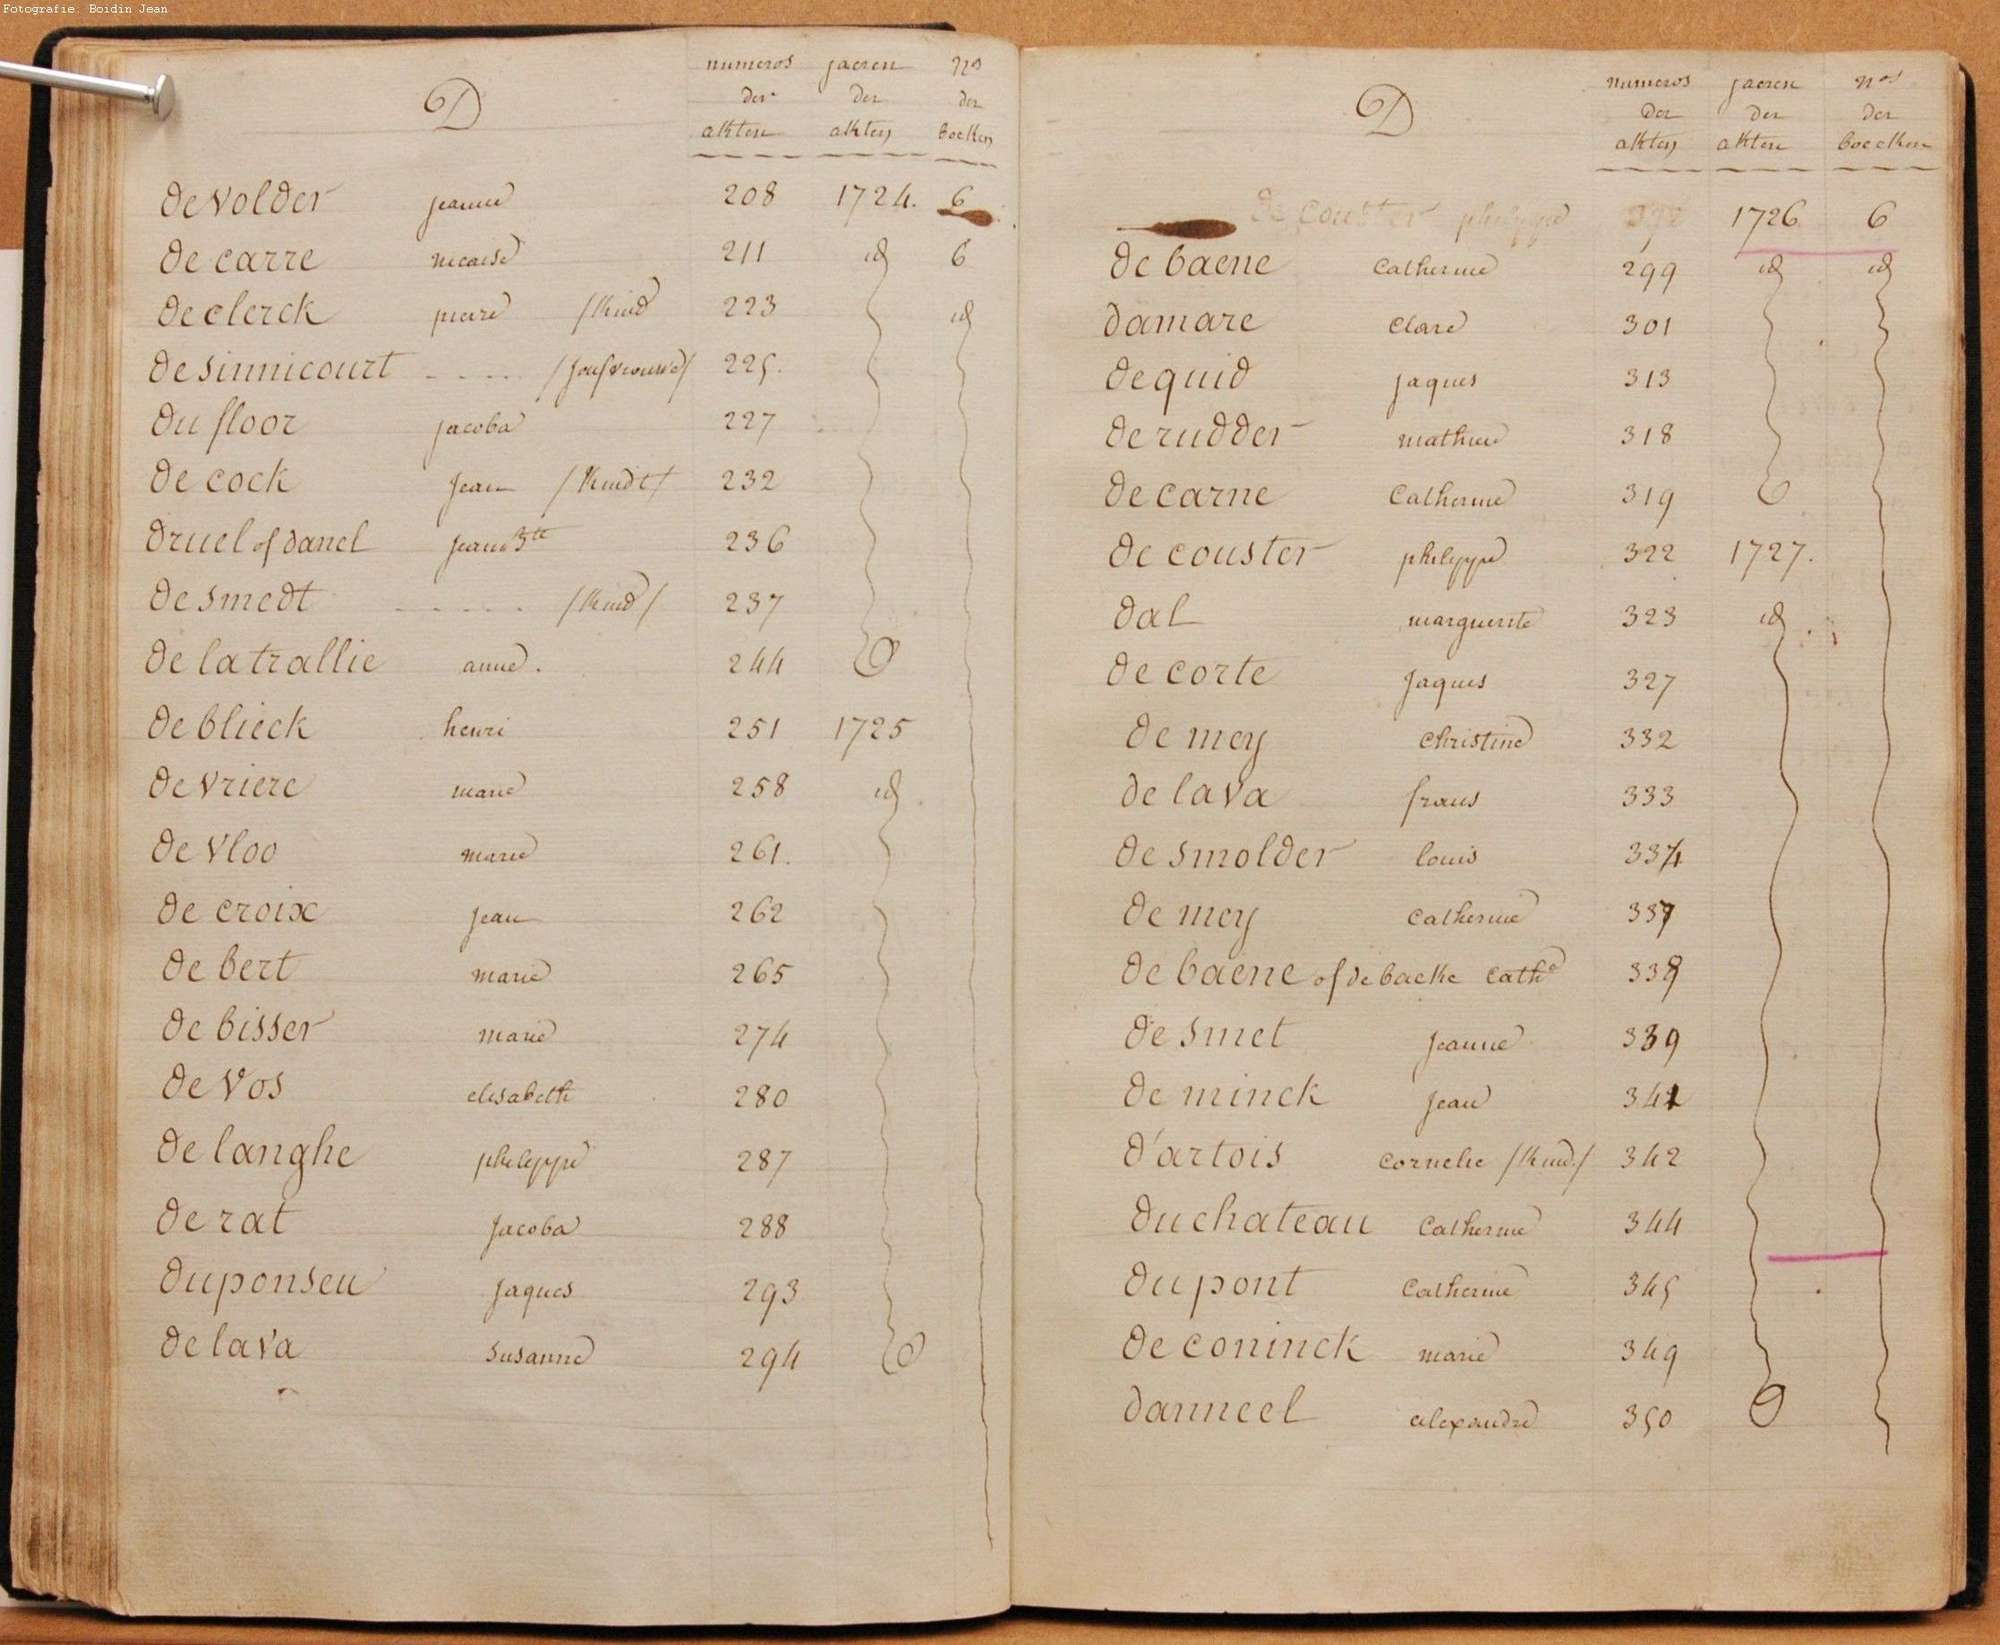 Fotografie: Boidin Jean
D
numeros jaeren Nos
der der der
akten akten boeken
de volder jeanne 208 1724. 6
de carre nicaise 211 id 6
de clerck pierre /kind 223 id
de sinnicourt - - - - /jonfvrouwe/ 225.
du floor jacoba 227
de cock jean /kindt/ 232
druel of danel jeane Bte 236
de smedt - - - - - /kind/ 237
de latrallie anne. 244
de blieck henri 251 1725
de vriere marie 258 id
de vloo marie 261.
de croix jean 262
de bert marie 265
de bisser marie 274
de vos elisabeth 280
de langhe philippe 287
de rat jacoba 288
duponseu jaques 293
de lava susanne 294
D
numeros jaeren nos
der der der
akten akten boecken
de couster philippe 1726 6
de baene catherine 299 id id
damare clare 301
dequid jaques 313
de rudder mathieu 318
de carne catherine 319
de couster philippe 322 1727.
dal marguerite 323 id
de corte jaques 327
de mey christine 332
de lava frans 333
de smolder louis 334
de mey catherine 337
de baene of de backe cathe 338
de smet jeanne 339
de minck jean 341
d'artois cornelie /kind/ 342
duchateau catherine 344
dupont catherine 345
de coninck marie 349
danneel alexandre 350